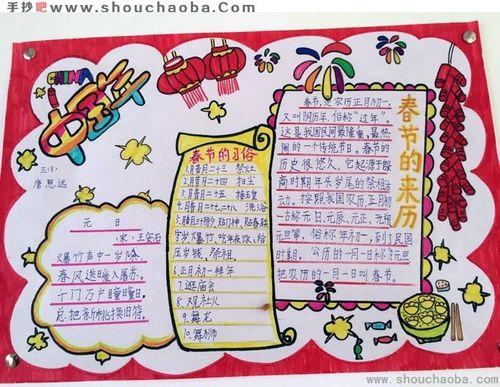 手抄吧 www.shouchaoba.com
CHINA
中国年
三.(3)
唐思远
元日
宋·王安石
爆竹声中一岁除,
春风送暖入屠苏。
千门万户曈曈日,
总把新桃换旧符。
春节的习俗
1.腊月二十三 祭灶
2.腊月二十四 扫尘
3.腊月二十五 接玉皇
守岁,爆竹,吃年夜饭,给
压岁钱,祭祖
6.正月初一 拜年
7.逛庙会
8.观社火
9.舞龙
10.舞狮
春节的来历
春节,是农历正月初一,
又叫阴历年,俗称“过年”。
这是我国民间最隆重、最热
闹的一个传统节日。春节的
历史很悠久,它起源于殷
商时期年头岁尾的祭祖
活动。按照我国农历,正月初
一古称元日、元辰、元正、元朔、
元旦等,俗称年初一,到了民国
时期,公历的一月一日称为元旦
把农历的一月一日叫春节。
www.shouchaoba.com